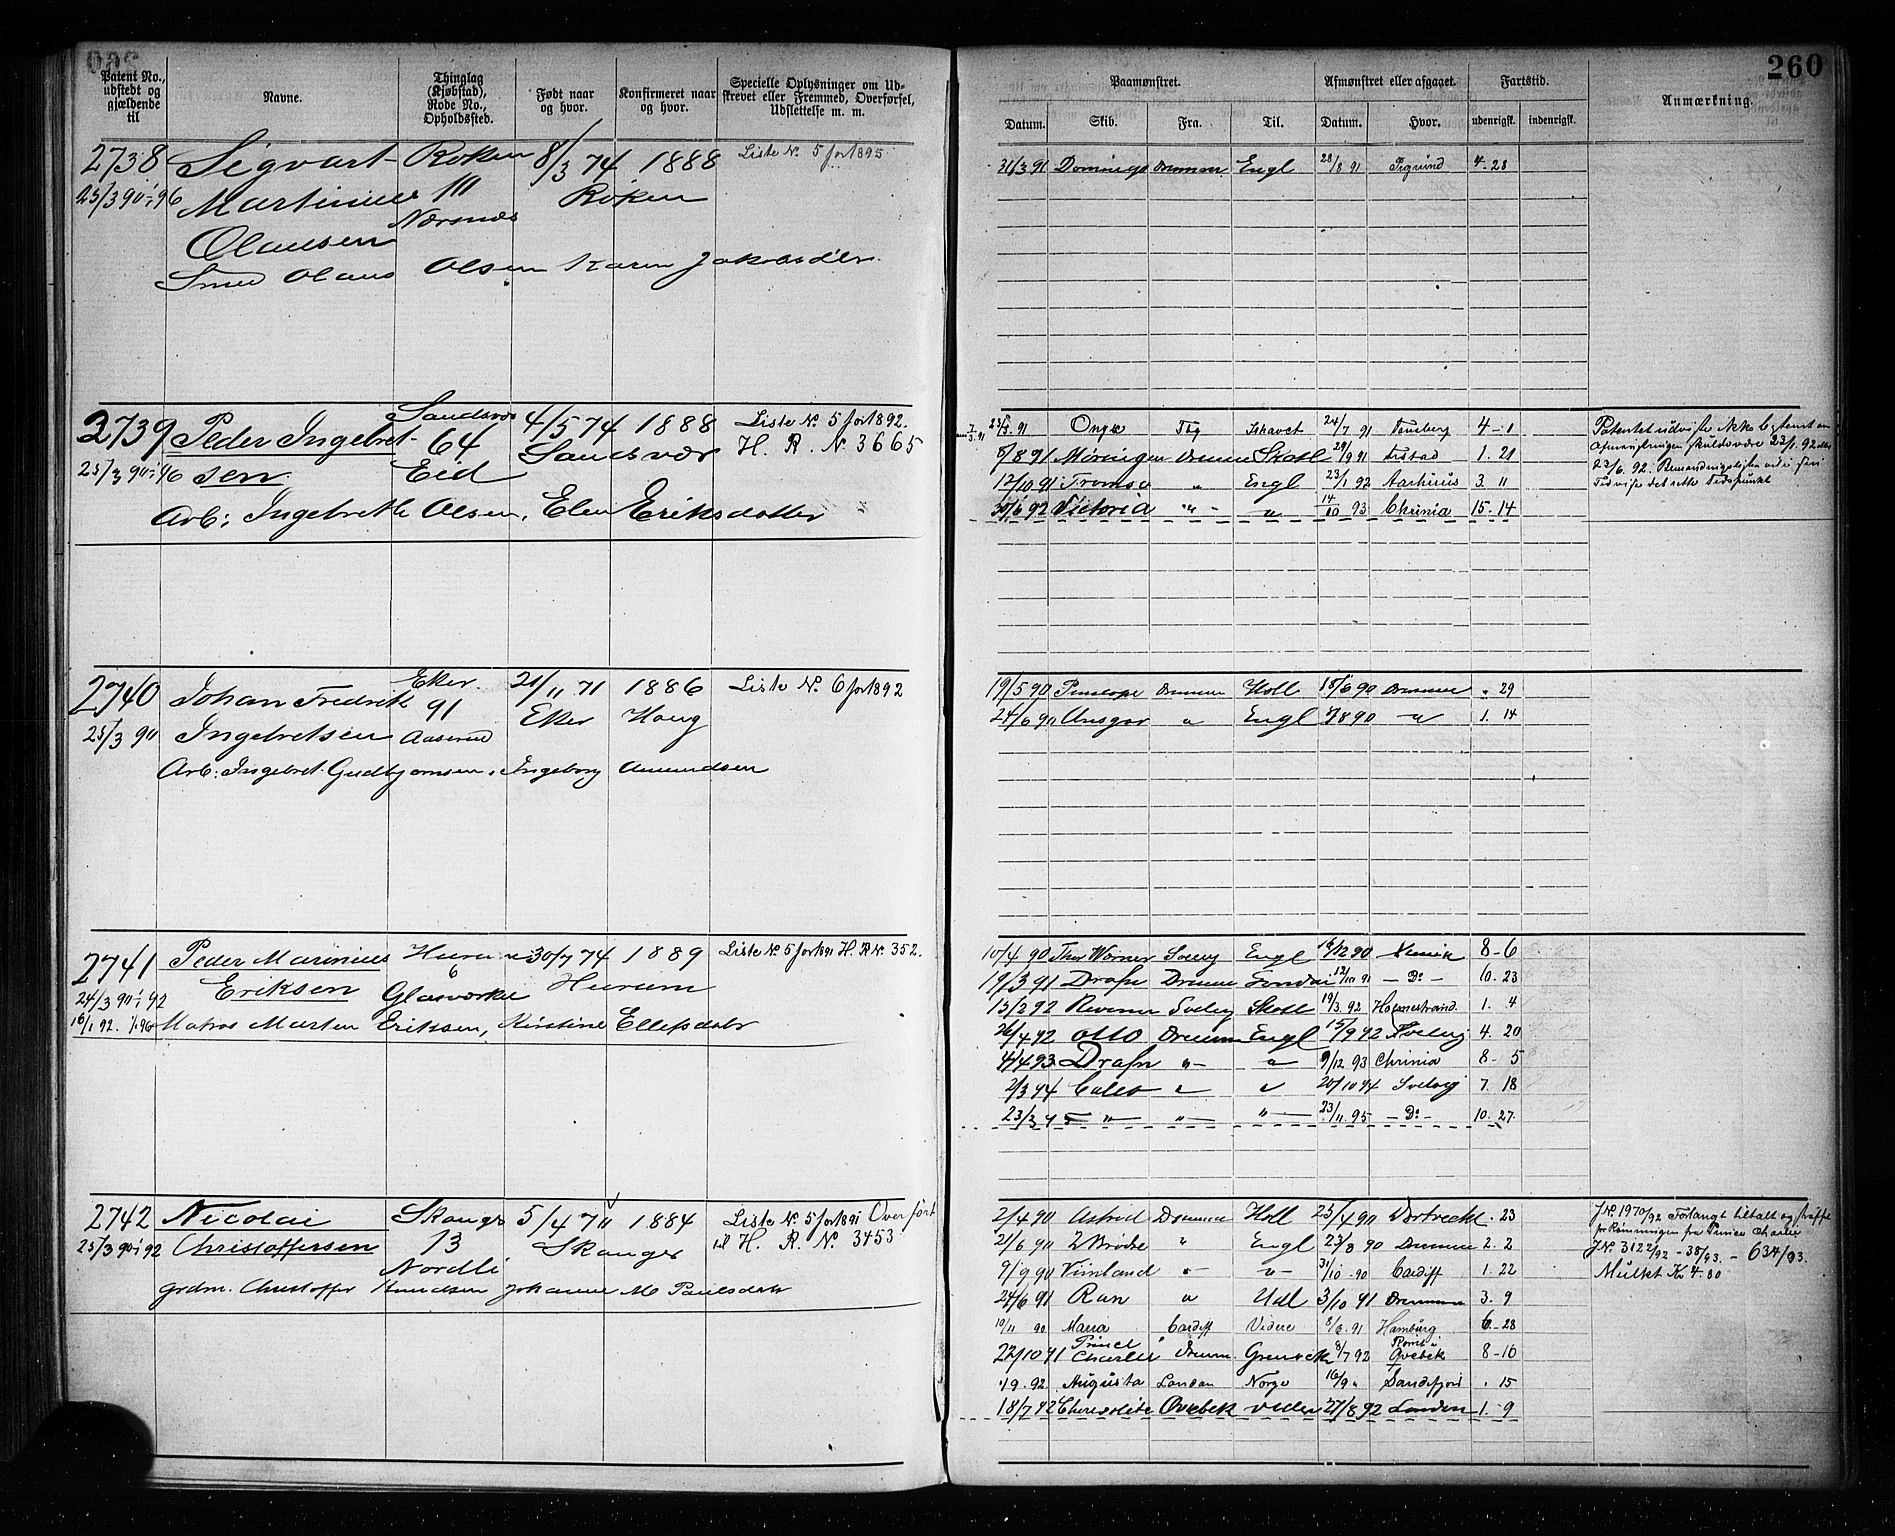 260
Patent No., udstedt og gjældende til
Navne.
Thinglag (Kjøbstad), Rode No., Opholdssted.
Født naar og hvor.
Konfirmeret naar og hvor.
Specielle Oplysninger om Udskrevet eller Fremmed, Overførsel, Udslettelse m. m.
Paamønstret.
Afmønstret eller afgaaet.
Fartstid.
Anmærkning.
Datum. Skib. Fra. Til. Datum. Hvor. udenrigsk. indenrigsk.
2738 Sigvart Røken 8/3 74 1888 Liste No. 5 for 1895
25/3 90 - 1/1 96 Martinius 111 Røken
Nærsnæs
Olausen
Smed Olaus Olsen Karen Jakobsd'tr
31/3 91 Domingo Drammen Engl 28/8 91 4-28
2739 Peder Ingebret- Sandsvær 4/5 74 1888 Liste No. 5 for 1892.
64 Sandsvær H. R. No. 3665
25/3 90 - 96 sen Eid
Arb: Ingebreth Olsen, Elen Eriksdatter
91 Tbg Ishavet 24/7 91 Tønsberg 4-1
5/8 91 Møringen Drammen Skotl 28/9 91 1. 21
12/10 91 Tromsø " Engl 23/1 92 Aarhuus 3. 11
30/6 92 Victoria " " 14/10 93 Chrinia 15-14
2740 Johan Fredrik Eker 21/11 71 1886 Liste No. 6 for 1892
91 Eker Haug
25/3 90 Ingebretsen Aaserud
Arb: Ingebret Gudbjornsen, Ingeborg Amundsen
19/5 90 Penelope Drammen Holl 15/6 90 Drammen " 29
24/6 90 Ansgar " Engl 7/8 90 " 1. 14
2741 Peder Marinius Hurum 30/7 74 1889 Liste No. 5 for 1891 H. R No. 352.
6
24/3 90 - 1/1 92 Eriksen Glasværket Hurum
16/1 92. 1/1 96 Matros Marten Eriksen, Kirstine Ellefsdatr
10/4 90 Thor Worner Svelvig Engl 90 8-6
19/3 91 Drafn Drammen London 12/10 91 — Do — 6. 23
15/2 92 Revenue Svelvig Skotl 19/3 92 Holmestrand. 1. 4
26/4 92 Otto Drammen Engl 15/9 92 Svelvig 4. 20
4/4 93 Drafn " " 9/12 93 Chrinia 8-5
2/3 94 " " 20/10 94 Svelvig 7. 18
23/3 95 — " — " " 23/11. 95 — Do — 10. 27.
2742 Nicolai Skoger 5/4 70 1884 Liste No. 5 for 1891 Overført
25/3 90 - 1/1 92 Christoffersen 13 Skoger til H. R. No. 3453
Nordli
grdm. Christoffer Knudsen Johanne M Paulsdatr
2/4 90 Astrid Drammen Holl 25/4 90 Dortrecht " 23
2/6 90 2 Brødre " Engl 23/8 90 Drammen 2. 2
9/9 90 Vimland " " 31/10 90 Cardiff 1. 22
24/6 91 Ran " Udl 3/10 91 Drammen 3. 9
10/11 90 Maria Cardiff Videre 8/6. 91 Hamburg. 6-28
22/10 91 Prince Charlie Dramn. 8/7 92 Qvebek 8-16
92 Augusta London Norge 16/9 " Sandefjord " 15
18/7 92 Qvebek videre 27/8 92 London 1-9
J No. 1970/92 Forlangt tiltalt og straffe
for Rømningen fra Prince Charlie
J No. 3122/92 - 38/93. - 634/93.
Mulkt Kr 4.80